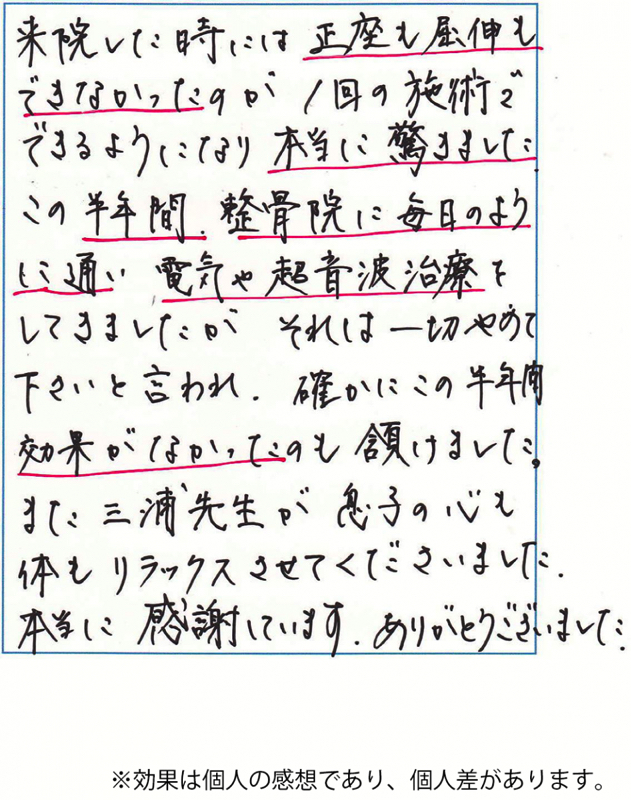 来院した時には 正座も屈伸も
できなかったのが 1回の施術で
できるようになり 本当に驚きました
この半年間、整骨院に毎日のよう
に通い 電気や超音波治療を
してきましたが それは一切やめて
下さいと言われ、確かにこの半年間
効果がなかったのも頷けました。
また三浦先生が息子の心も
体もリラックスさせてくださいました。
本当に感謝しています。ありがとうございました。
※効果は個人の感想であり、個人差があります。